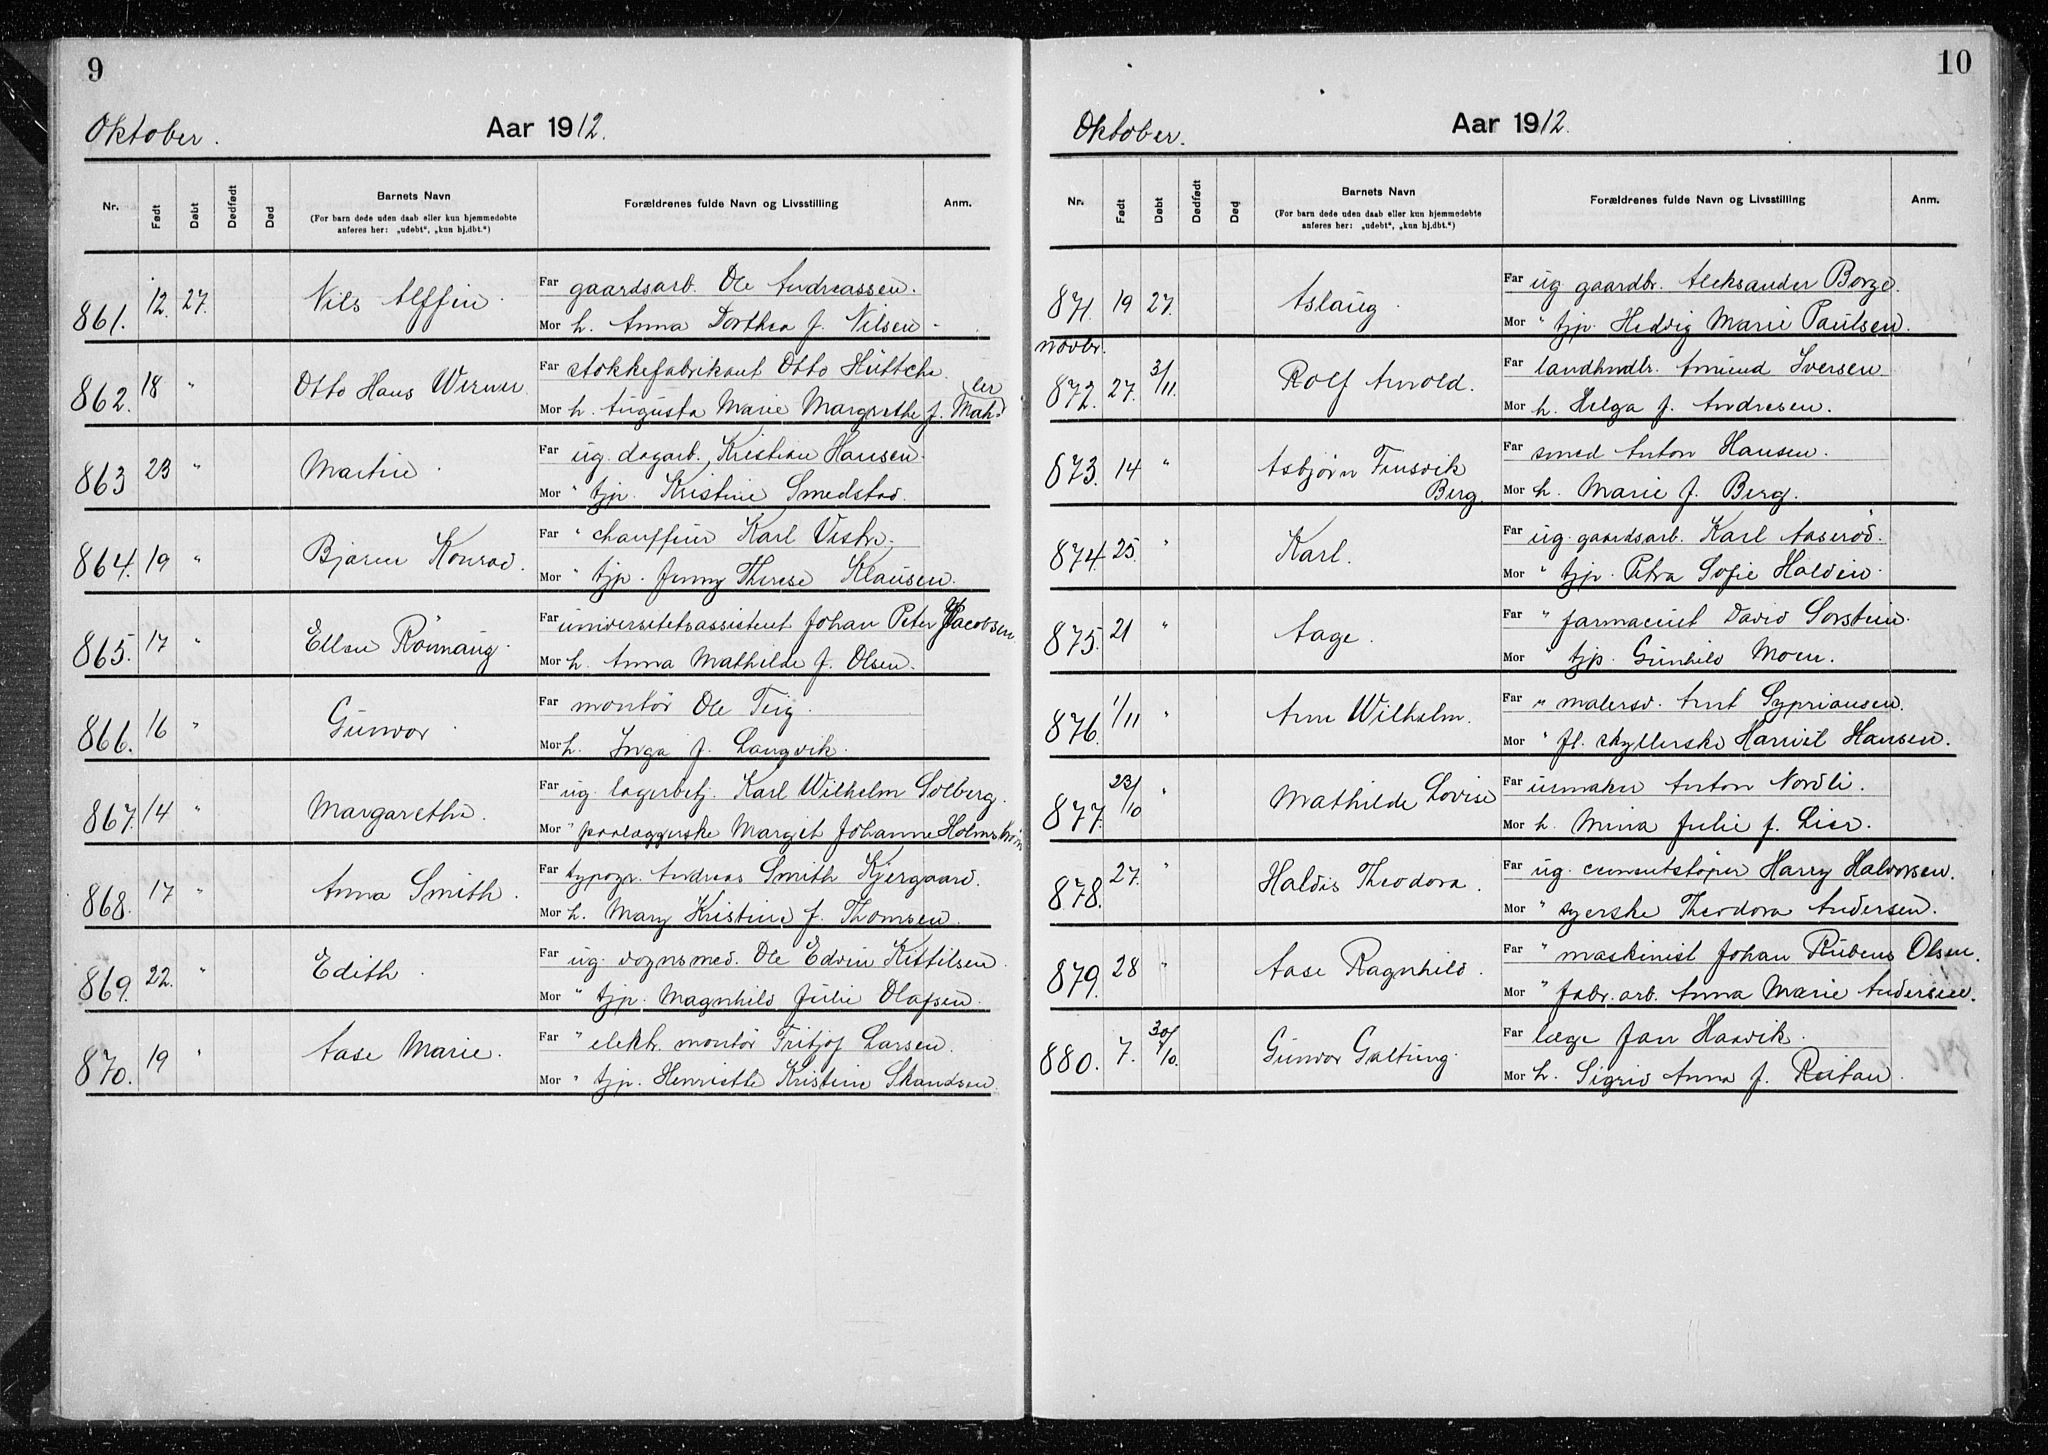 9
Oktober.
Aar 1912.
Nr.
Født
Døbt
Dødfødt
Død
Barnets Navn
(For barn døde uden daab eller kun hjemmedøbte
anføres her: „udøbt“, „kun hj.dbt.“)
Forældrenes fulde Navn og Livsstilling
Anm.
861. 12. 27. Nils Alffin.
Far gaardsarb. Ole Andreassen.
Mor h. Anna Dorthea f. Nilsen.
862. 18 " Otto Hans Werner.
Far stokkefabrikant Otto Hüttche
Mor h. Augusta Marie Margrethe f. Mah-
ler
863 23 " Martin.
Far ug. dagarb. Kristian Hansen.
Mor " tjp. Kristine Smedstad.
864. 19 " Bjarne Konrad.
Far " chauffeur Karl Vestre.
Mor " tjp. Jenny Therese Klausen.
865. 17 " Ellen Rönnaug.
Far universitetsassistent Johan Peter Jacobsen
Mor h. Anna Mathilde f. Olsen.
866. 16 " Gunvor.
Far montör Ole Teig.
Mor h. Inga f. Langvik.
867. 14 " Margarethe.
Far ug. lagerbetj. Karl Wilhelm Solberg.
Mor " paalæggerske Margit Johanne Holmström
868. 17 " Anna Smith.
Far typogr. Andreas Smith Kjergaard.
Mor h. Mary Kristine f. Thomsen.
869. 22. " Edith.
Far ug. vognsmed. Ole Edvin Kittilsen.
Mor " tjp. Magnhild Julie Olafsen.
870. 19 " Aase Marie.
Far " elektr. montör Fritjof Larsen.
Mor " tjp. Henriette Kristine Skandsen.
10
Oktober.
Aar 1912.
Nr.
Født
Døbt
Dødfødt
Død
Barnets Navn
(For barn døde uden daab eller kun hjemmedøbte
anføres her: „udøbt“, „kun hj.dbt.“)
Forældrenes fulde Navn og Livsstilling
Anm.
871. 19 27. Aslaug.
Far ug. gaardbr. Aleksander Borge.
Mor " tjp. Hedvig Marie Paulsen.
novbr.
872. 27. 3/11. Rolf Arnold.
Far landhndlr. Amund Iversen.
Mor h. Helga f. Andresen.
873. 14 " Asbjørn Finsvik
Berg.
Far smed Anton Hansen.
Mor h. Marie f. Berg.
874. 25 " Karl.
Far ug. gaardsarb. Karl Aaseröd.
Mor " tjp. Petra Sofie Halden.
875. 21 " Aage.
Far " farmaceut David Sorstein.
Mor " tjp. Gunhild Moen.
876. 1/11 " Arne Wilhelm.
Far " malersv. Arnt Sypriansen.
Mor " fl. skyllerske Harriet Hansen.
877. 23/10 " Mathilde Lovise
Far urmaker Anton Nordli.
Mor h. Mina Julie f. Lier.
878. 27. " Haldis Theodora.
Far ug. cementstöper Harry Halvorsen.
Mor " syerske Theodora Andersen.
879. 28 " Aase Ragnhild.
Far " maskinist Johan Rubens Olsen.
Mor " fabr. arb. Anna Marie Andersen.
880. 7. 30/10. Gunvor Galtung.
Far læge Jan Haavik.
Mor h. Sigrid Anna f. Reitan.